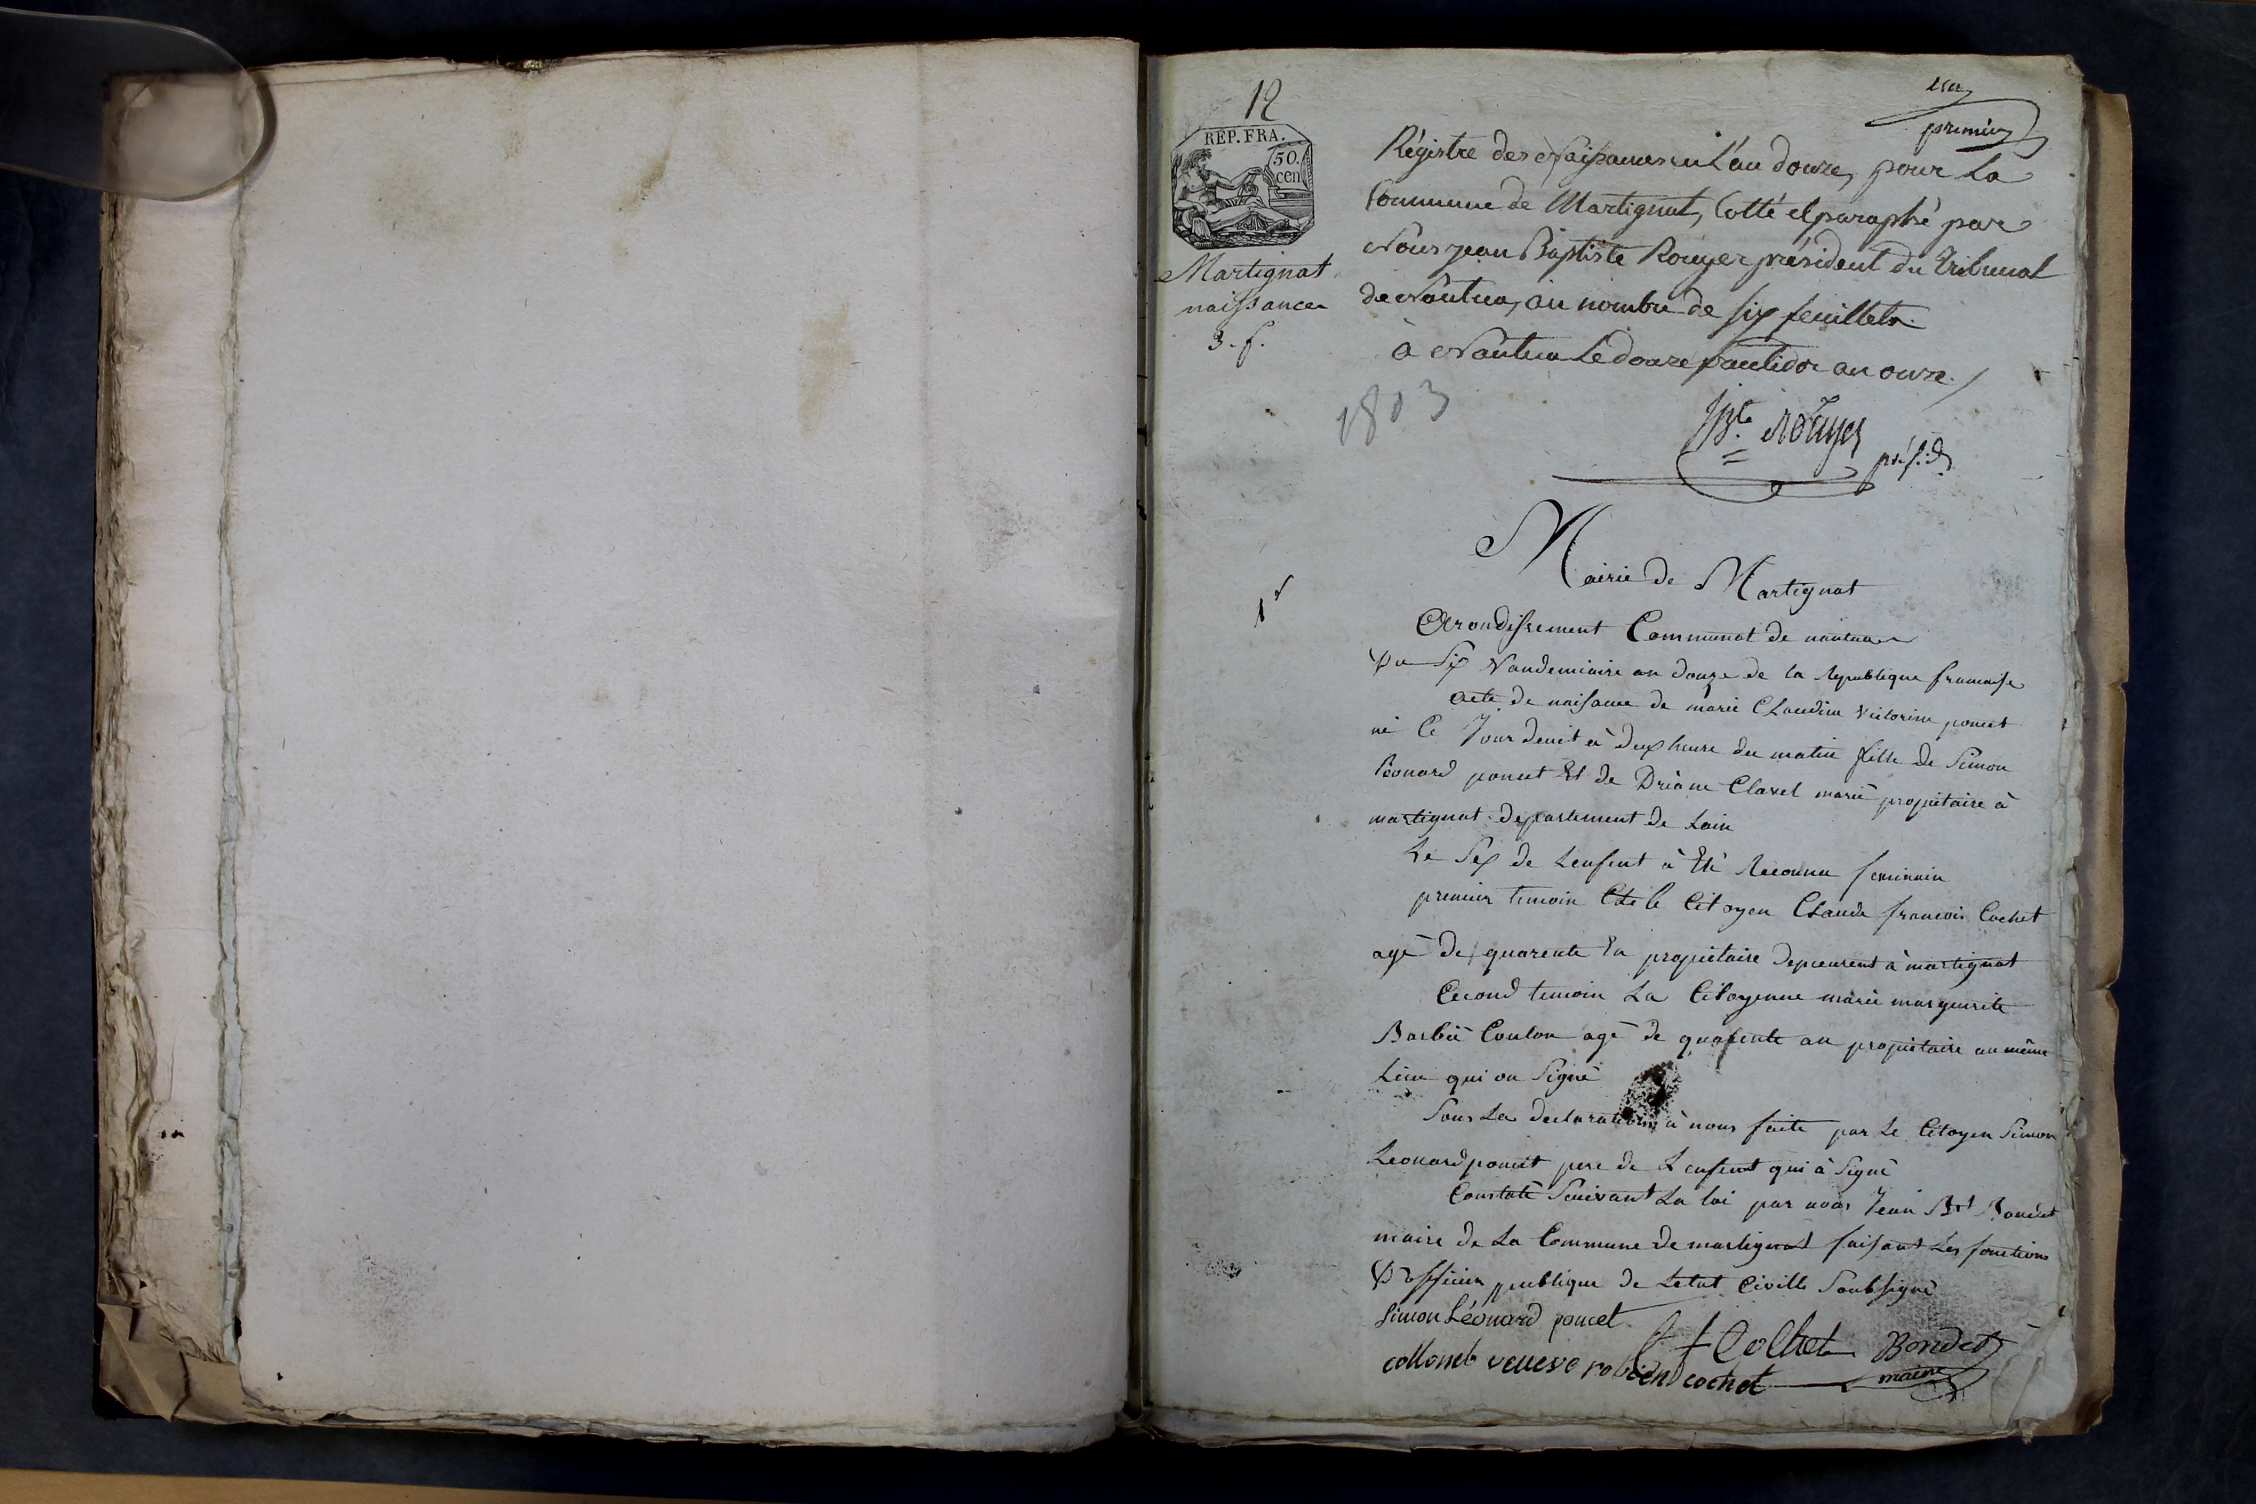 12
1er
premier
REP. FRA.
50.
cen
Martignat
naissance
3. f.
Régistre des Naissances en L'an douze, pour La
Commune de Martignat, Cotté et paraphé par
Nous jean Baptiste Rouyer président du Tribunal
de Nantua, au nombre de six feuillets.
à Nantua Le douze fructidor an onze.
1803
JBte Rouyer
présid.
Mairie de Martignat
1r
Arondissement Communal de nantua
Du Six Vandemiaire an douze de la Republique francaise
acte de naisance de marie Claudine Victorine poncet
né Ce Jour deuit à deux heure du matin fille de Simon
Léonard poncet Et de Driane Clavel marié propiétaire à
martignat département de Lain
Le Sex de Lenfent à Eté Reconnu feminin
premier temoin Ete le Citoyen Claude francois Cochet
agé de quarente En propiétaire demeurent à martignat
Cecond temoin La Citoyenne marie marguerite
Barbié Coulon agé de quarente an propiétaire au même
Lieu qui on Signé
Sous La declaration à nous faite par Le Citoyen Simon
Leonard poncet pere de Lenfent qui à Signé
Constaté Suivant La loi par nous Jean Bt Bondet
maire de La Commune de martignat faisant Les fonctions
D'officier publique de Letat Civille Soubsigné
Simon Léonard poncet
C f Cochet
Bondet
maire
collomb veuve robien cochet